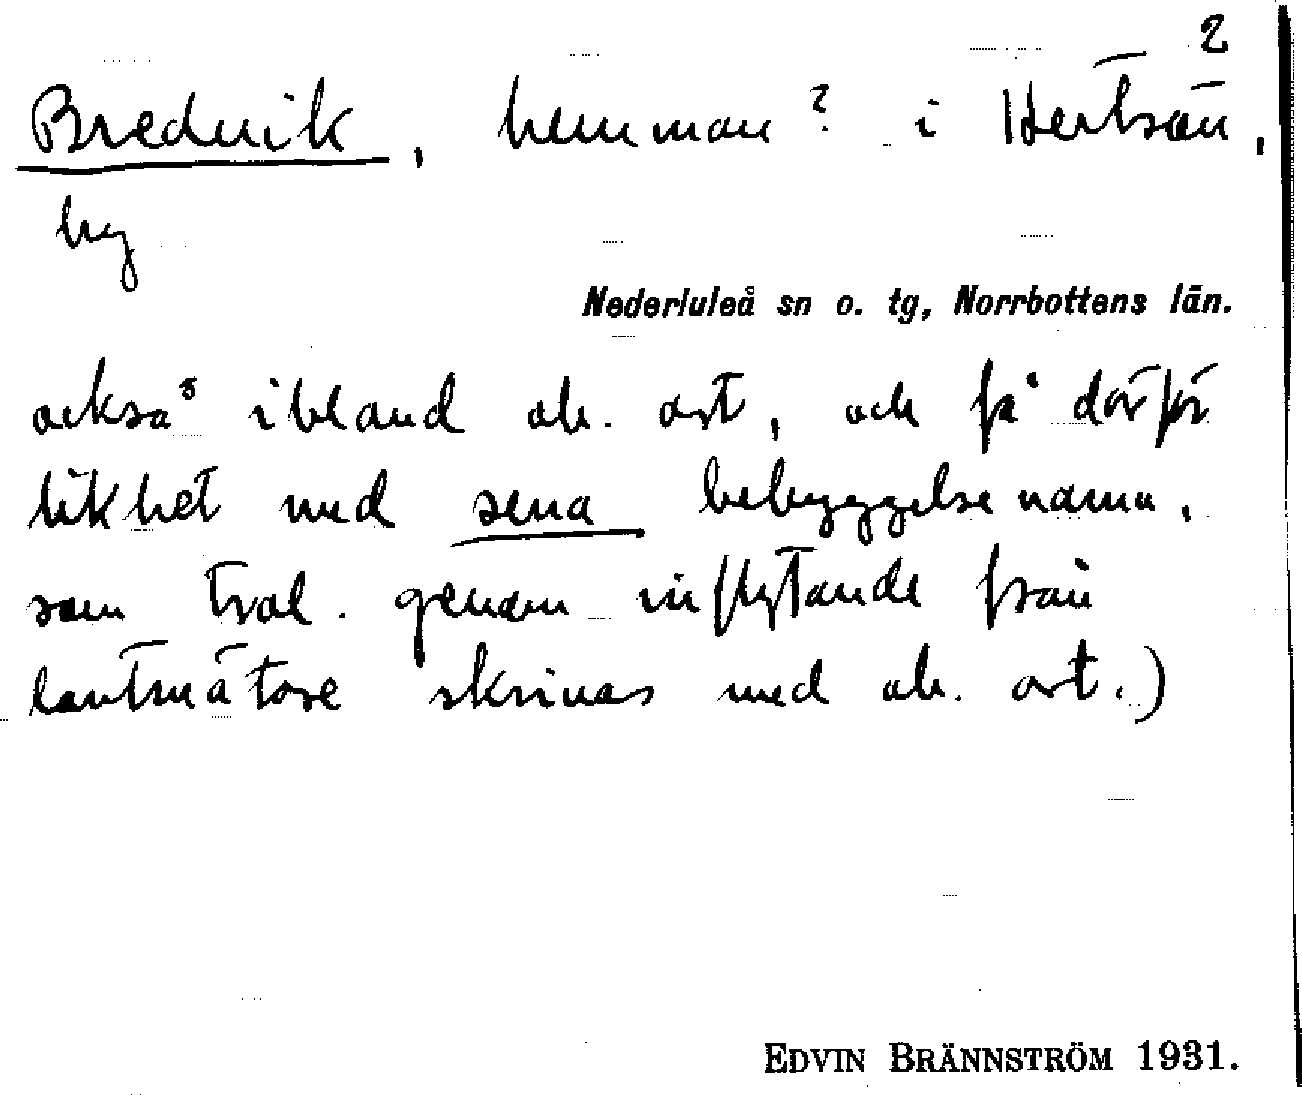 2
Bredvik, hemman? i Hertsön,
by
Nederluleå sn o. tg, Norrbottens län.
också ibland ob. art, och få därför
likhet med sena bebyggelsenamn,
som trol. genom inflytande från
lantmätare skrivas med ob. art.)
EDVIN BRÄNNSTRÖM 1931.